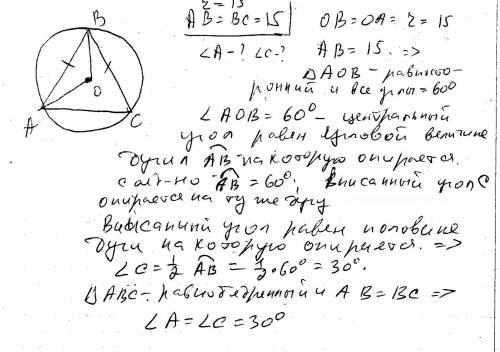 r = 15
AB = BC = 15
OB = OA = r = 15
∠A - ? ∠C - ?
AB = 15. =>
△AOB - равносто-
ронний и все углы = 60°
∠AOB = 60° - центральный
угол равен угловой величине
дуги AB на которую опирается.
AB = 60°; Вписанный угол C
опирается на ту же дугу
Вписанный угол равен половине
дуги на которую опирается. =>
∠C = 1/2 AB = 1/2 · 60° = 30°.
△ABC - равнобедренный и AB = BC =>
∠A = ∠C = 30°
B
O
A
C